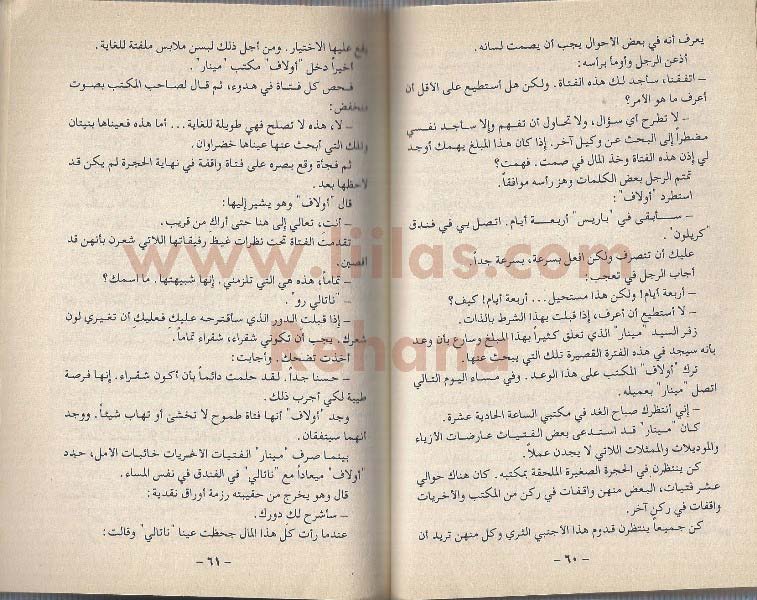 يعرف أنه في بعض الأحوال يجب أن يصمت لسانه.
أذعن الرجل وأوما برأسه:
– اتفقنا، ساجد لك هذه الفتاة. ولكن هل أستطيع على الأقل أن
أعرف ما هو الأمر؟
– لا تطرح أي سؤال، ولا تحاول أن تفهم وإلا ساجد نفسي
مضطراً إلى البحث عن وكيل آخر. إذا كان هذا المبلغ يهمك أوجد
لي إذن هذه الفتاة وخذ المال في صمت. فهمت؟
تمتم الرجل بعض الكلمات وهز رأسه موافقاً.
استطرد "أولاف":
– سأبقى في "باريس" أربعة أيام. اتصل بي في فندق
"كريلون".
عليك أن تتصرف ولكن افعل بسرعة، بسرعة جداً.
أجاب الرجل في تعجب:
– أربعة أيام! ولكن هذا مستحيل... أربعة أيام! كيف؟
– لا أستطيع أن أعرف، إذا قبلت بهذا الشرط بالذات.
زفر السيد "مينار" الذي تعلق كثيراً بهذا المبلغ وسارع بأن وعد
بأنه سيجد في هذه الفترة القصيرة تلك التي يبحث عنها.
ترك "أولاف" المكتب على هذا الوعد. وفي مساء اليوم التالي
اتصل "مينار" بعميله.
– إني أنتظرك صباح الغد في مكتبي الساعة الحادية عشرة.
كان "مينار" قد استدعى بعض الفتيات عارضات الأزياء
والموديلات والممثلات اللاتي لا يجدن عملاً.
كن ينتظرن في الحجرة الصغيرة الملحقة بمكتبه. كان هناك حوالي
عشر فتيات، البعض منهن واقفات في ركن من المكتب والأخريات
واقفات في ركن آخر.
كن جميعاً ينتظرن قدوم هذا الأجنبي الثري وكل منهن تريد أن
– ٦٠ –
يقع عليها الاختيار. ومن أجل ذلك لبسن ملابس ملفتة للغاية.
أخيراً دخل "أولاف" مكتب "مينار".
فحص كل فتاة في هدوء، ثم قال لصاحب المكتب بصوت
منخفض:
– لا، هذه لا تصلح فهي طويلة للغاية... أما هذه فعيناها بنيتان
وتلك التي أبحث عنها عيناها خضراوان.
ثم فجأة وقع بصره على فتاة واقفة في نهاية الحجرة لم يكن قد
لاحظها بعد.
قال "أولاف" وهو يشير إليها:
– أنت، تعالي إلى هنا حتى أراك من قريب.
تقدمت الفتاة تحت نظرات غيظ رفيقاتها اللاتي شعرن بأنهن قد
أقصين.
– تماماً، هذه هي التي تلزمني. إنها شبيهتها. ما اسمك؟
– "ناتالي رو".
– إذا قبلت الدور الذي ساقترحه عليك فعليك أن تغيري لون
شعرك. يجب أن تكوني شقراء، شقراء تماماً.
أخذت تضحك. وأجابت:
– حسنا جداً. لقد حلمت دائماً بأن أكون شقراء. إنها فرصة
طيبة لكي أجرب ذلك.
وجد "أولاف" أنها فتاة طموح لا تخشى أو تهاب شيئاً. ووجد
أنهما سيتفقان.
بينما صرف "مينار" الفتيات الأخريات خائبات الأمل، حدد
"أولاف" ميعاداً مع "ناتالي" في الفندق في نفس المساء.
قال وهو يخرج من حقيبته رزمة أوراق نقدية:
– سأشرح لك دورك.
عندما رأت كل هذا المال جحظت عينا "ناتالي" وقالت:
– ٦١ –
www.liilas.com
Rehana